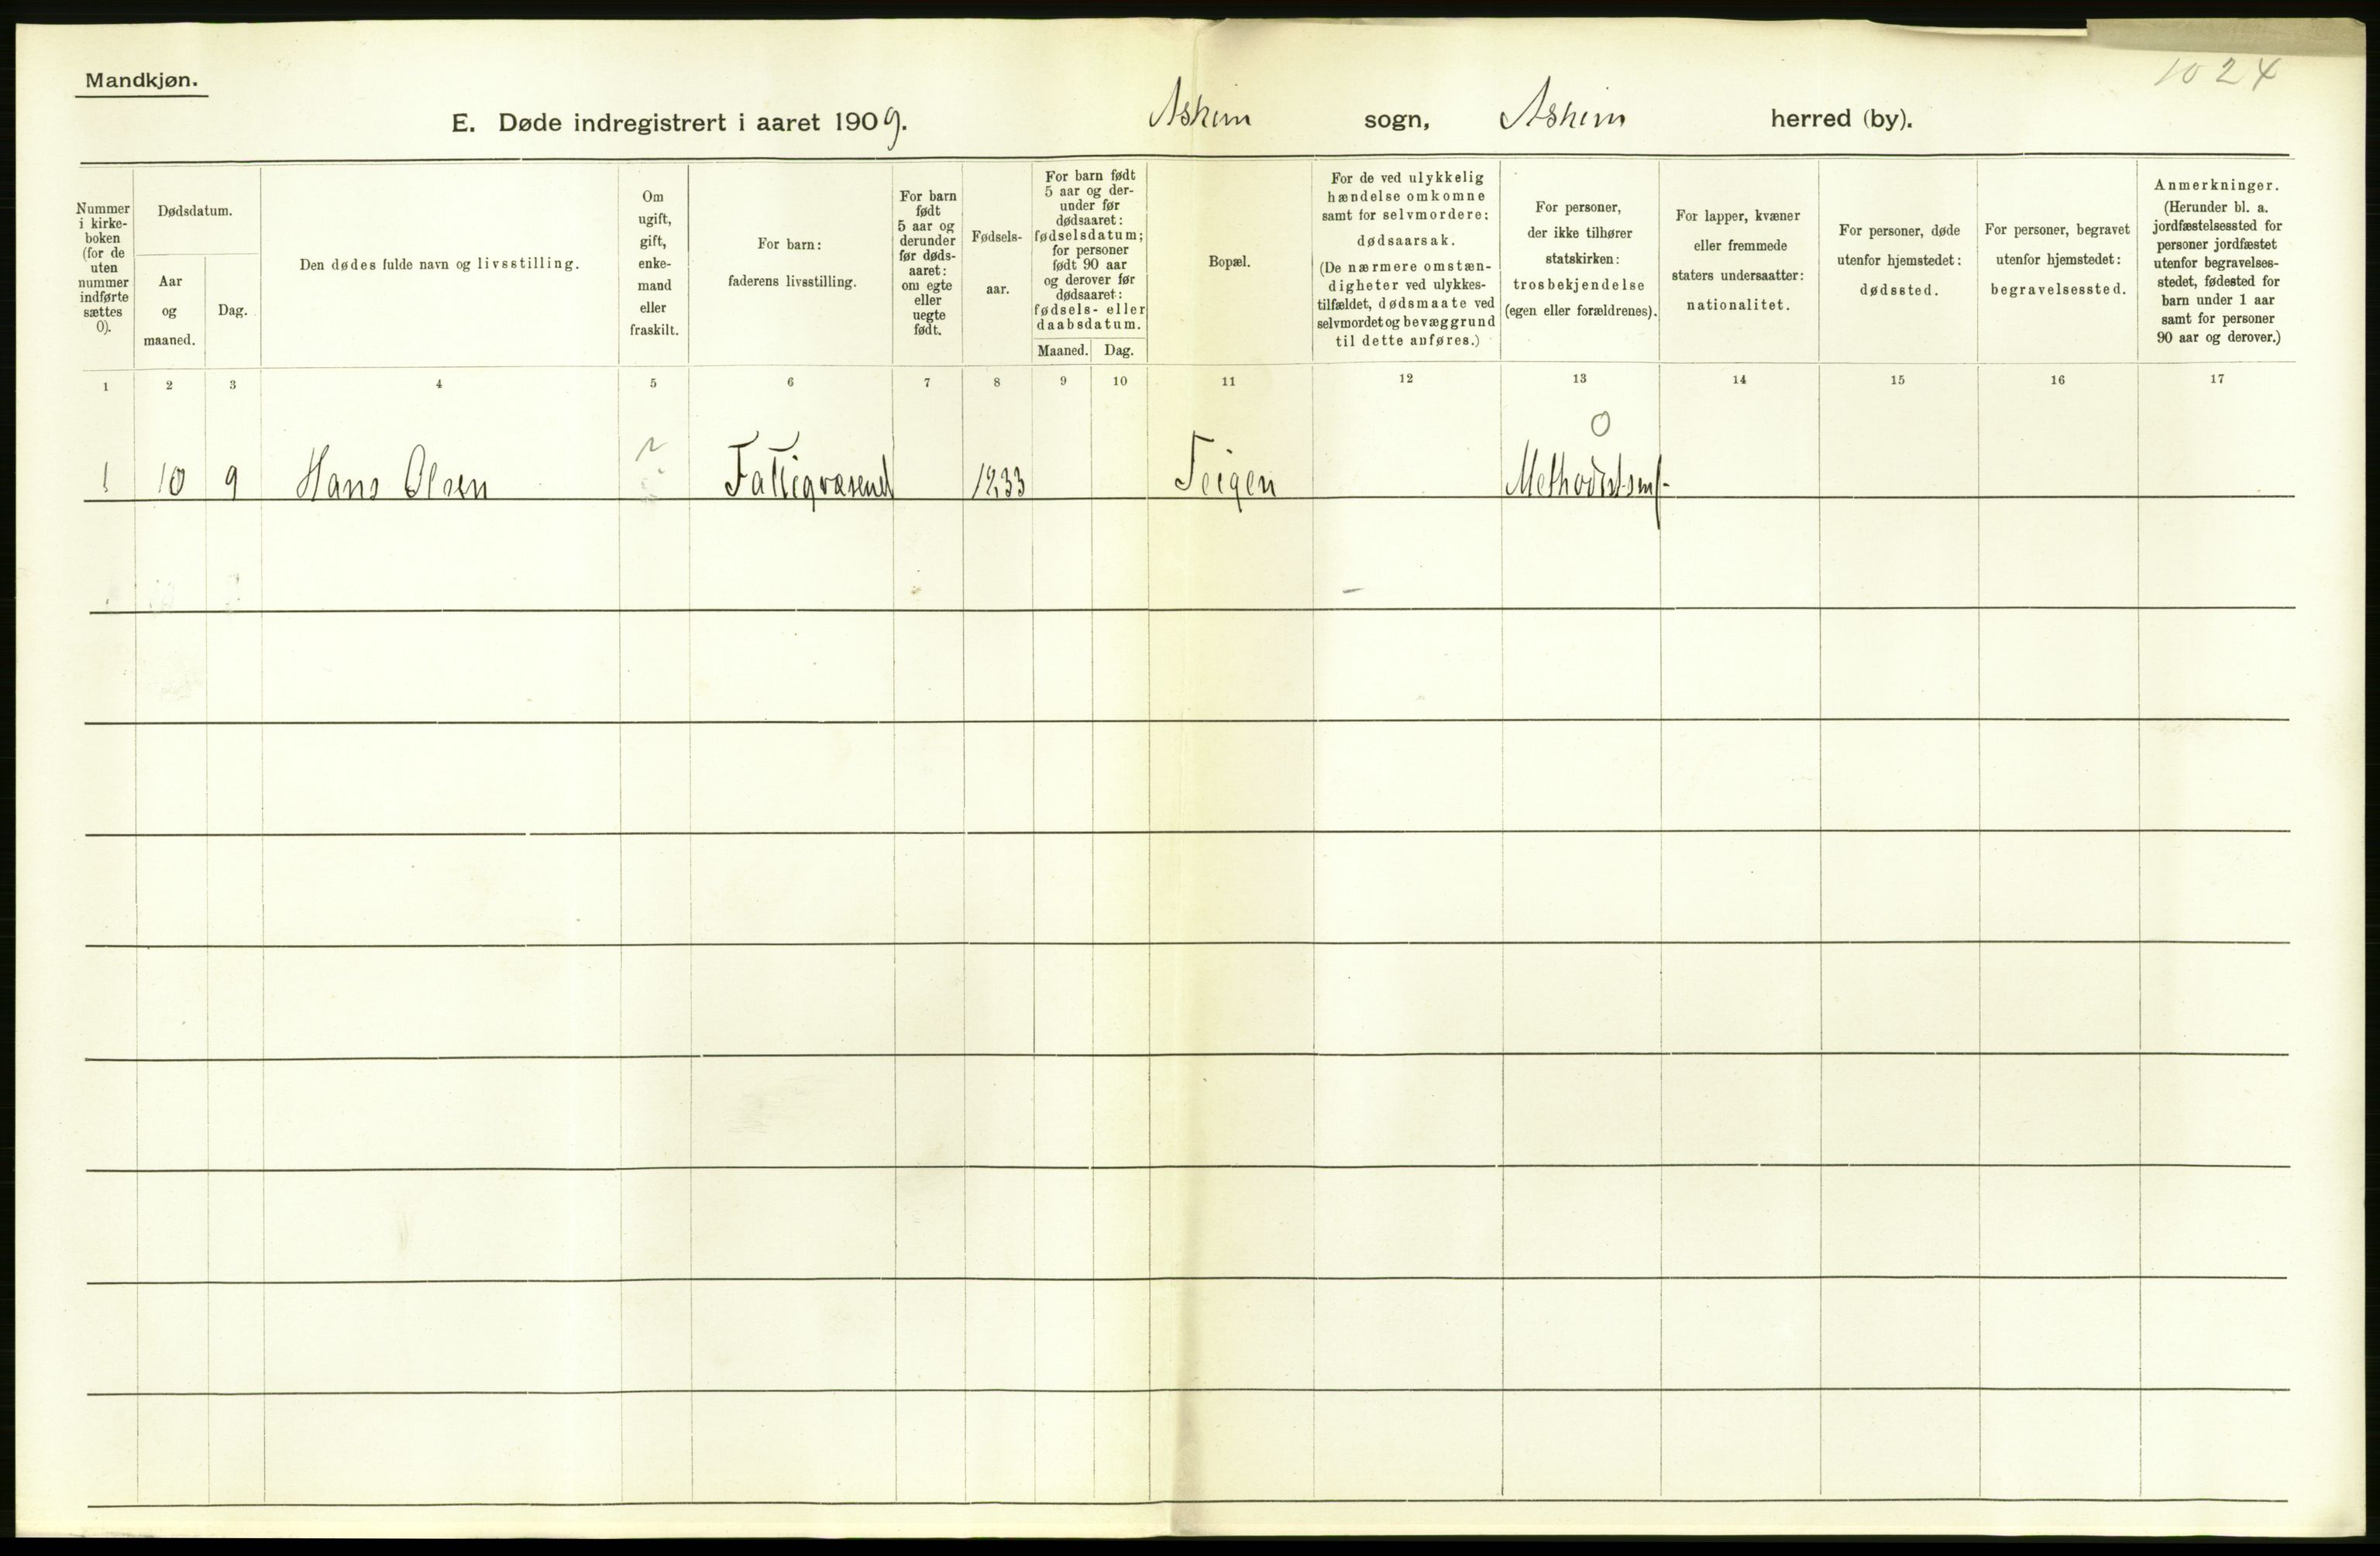 1024
Mandkjøn.
E. Døde indregistrert i aaret 1909. Askim sogn, Askim herred (by).
Nummer
i kirke-
boken
(for de
uten
nummer
indførte
sættes
0).
Dødsdatum.
Aar
og
maaned.
Dag.
Den dødes fulde navn og livsstilling.
Om
ugift,
gift,
enke-
mand
eller
fraskilt.
For barn:
faderens livsstilling.
For barn
født
5 aar og
derunder
før døds-
aaret:
om egte
eller
uegte
født.
Fødsels-
aar.
For barn født
5 aar og der-
under før
dødsaaret:
fødselsdatum;
for personer
født 90 aar
og derover før
dødsaaret:
fødsels- eller
daabsdatum.
Maaned. Dag.
Bopæl.
For de ved ulykkelig
hændelse omkomne
samt for selvmordere:
dødsaarsak.
(De nærmere omstæn-
digheter ved ulykkes-
tilfældet, dødsmaate ved
selvmordet og bevæggrund
til dette anføres.)
For personer,
der ikke tilhører
statskirken:
trosbekjendelse
(egen eller forældrenes).
For lapper, kvæner
eller fremmede
staters undersaatter:
nationalitet.
For personer, døde
utenfor hjemstedet:
dødssted.
For personer, begravet
utenfor hjemstedet:
begravelsessted.
Anmerkninger.
(Herunder bl. a.
jordfæstelsessted for
personer jordfæstet
utenfor begravelses-
stedet, fødested for
barn under 1 aar
samt for personer
90 aar og derover.)
1 2 3 4 5 6 7 8 9 10 11 12 13 14 15 16 17
0
1 10 9 Hans Olsen ? Fattigvæsenet 1833 Teigen